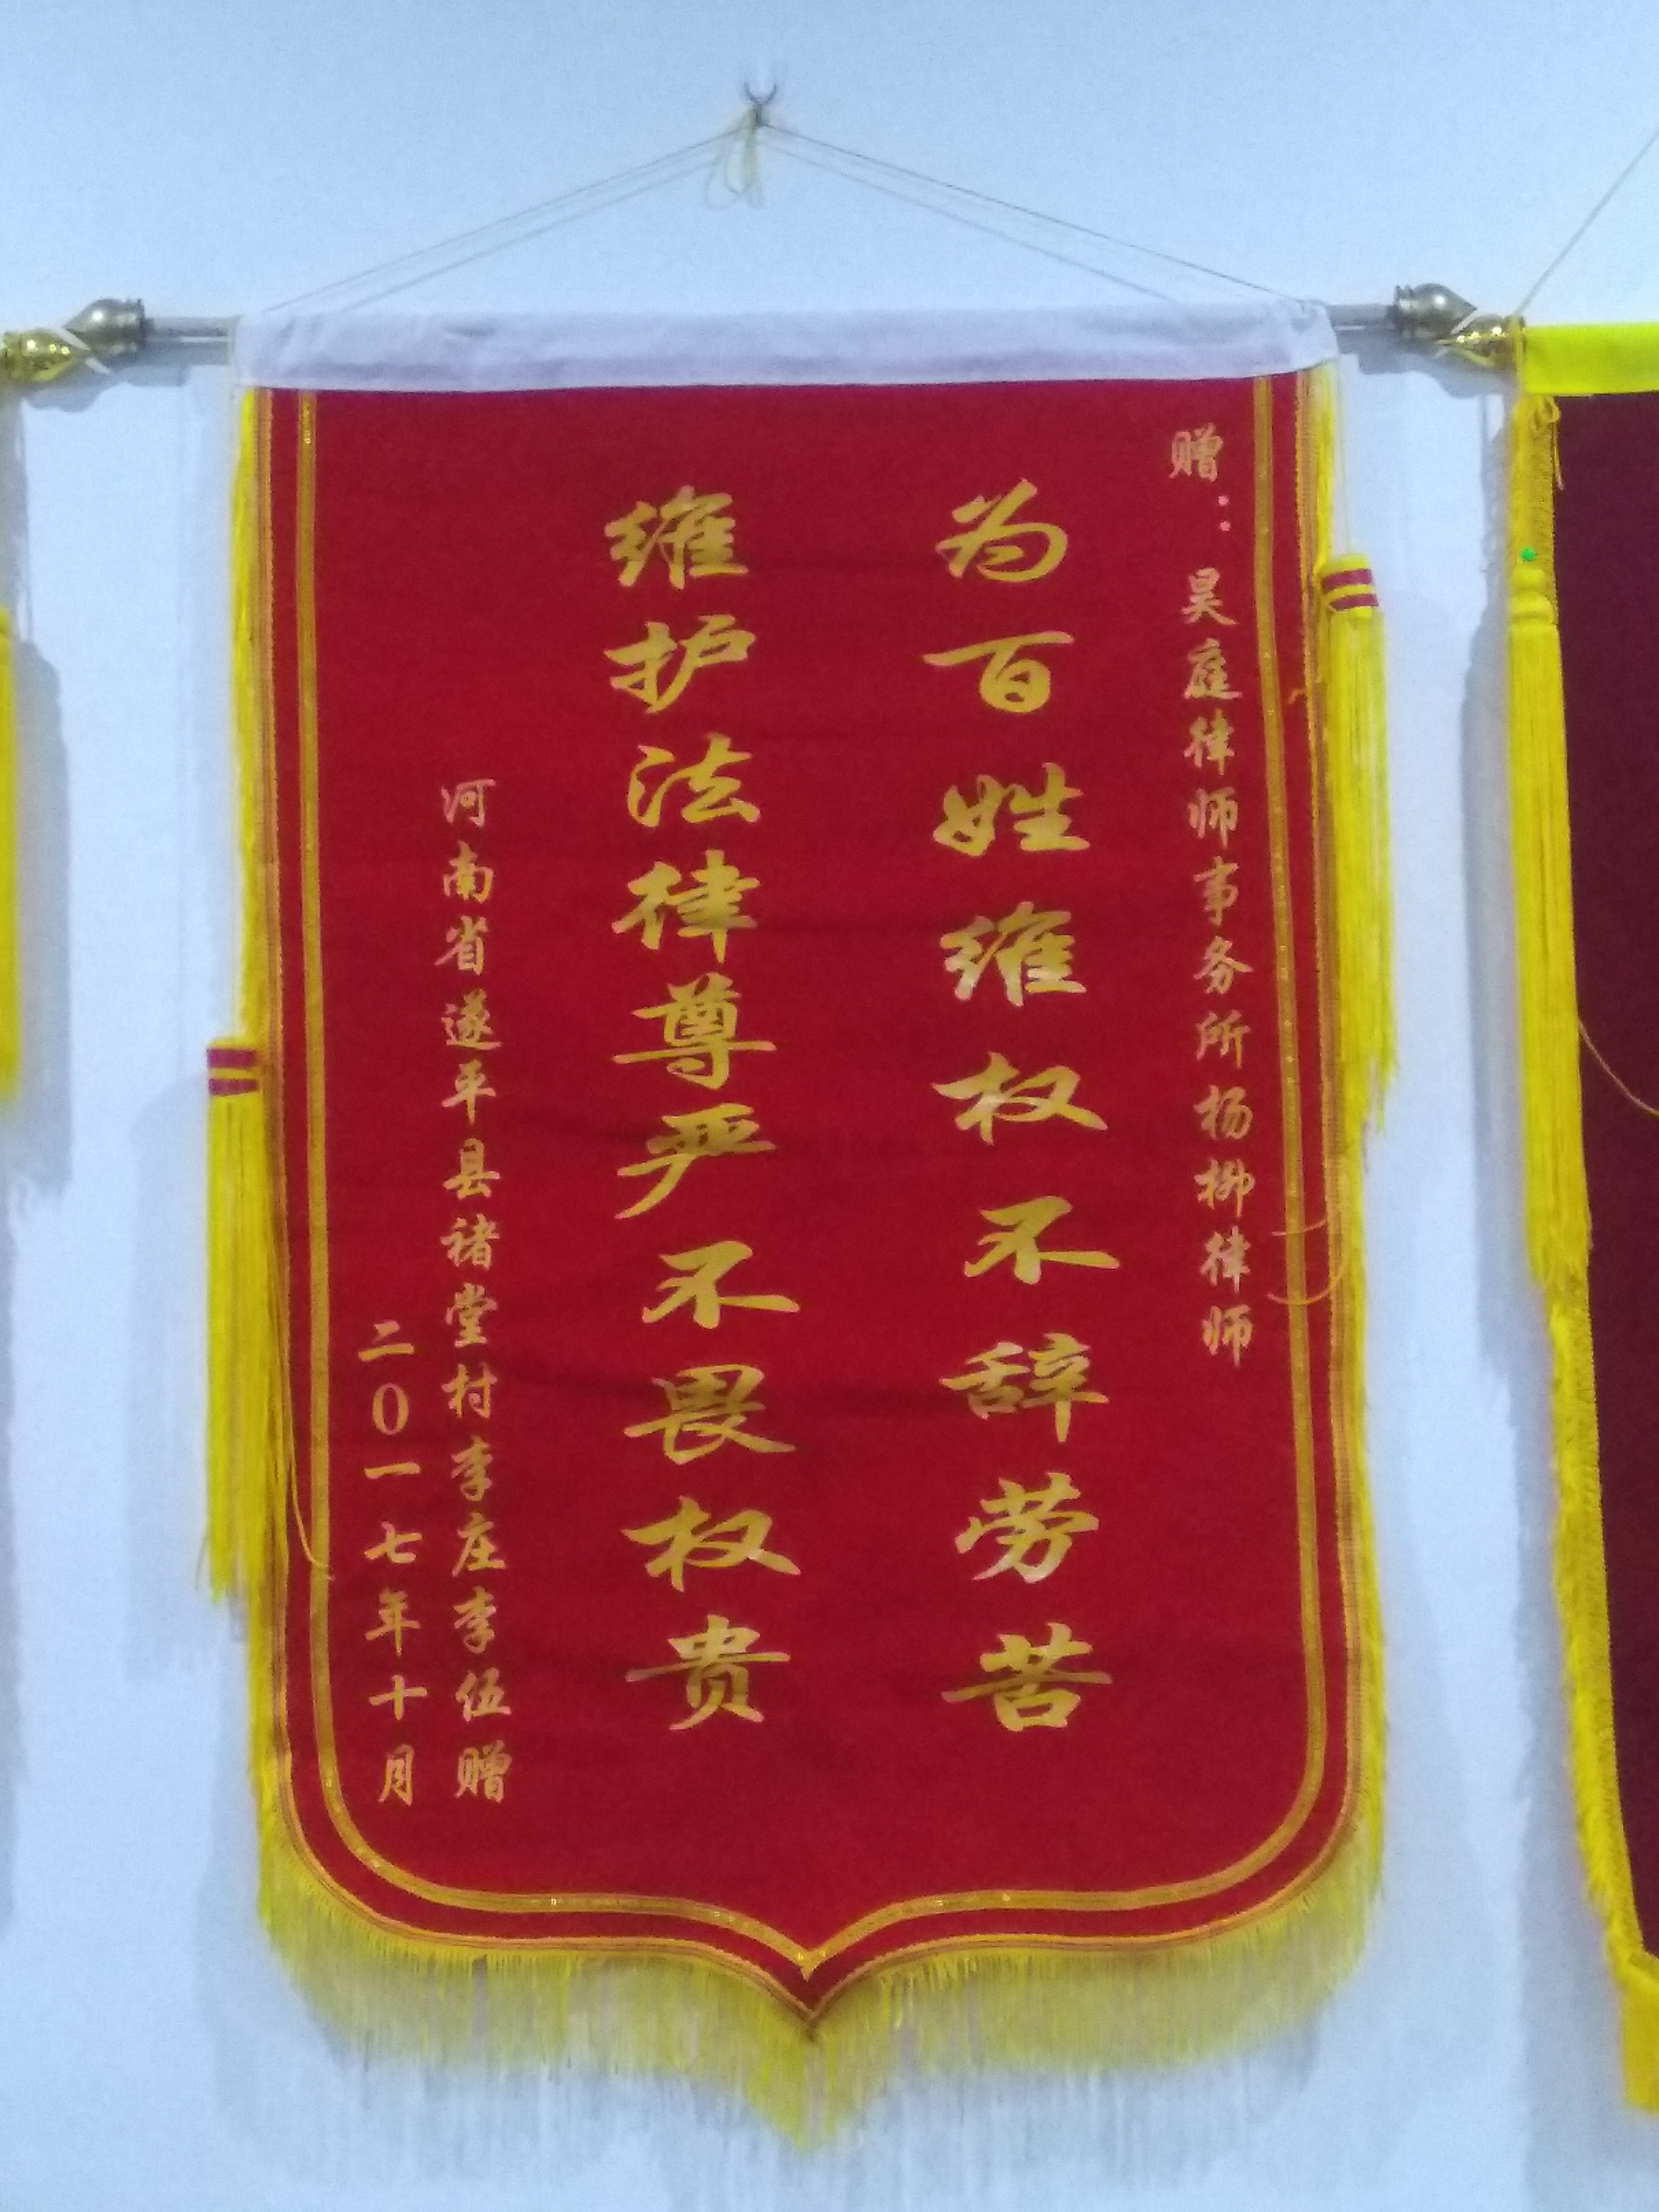 赠：昊庭律师事务所杨柳律师
为百姓维权不辞劳苦
维护法律尊严不畏权贵
河南省遂平县褚堂村李庄李伍赠
二0一七年十月